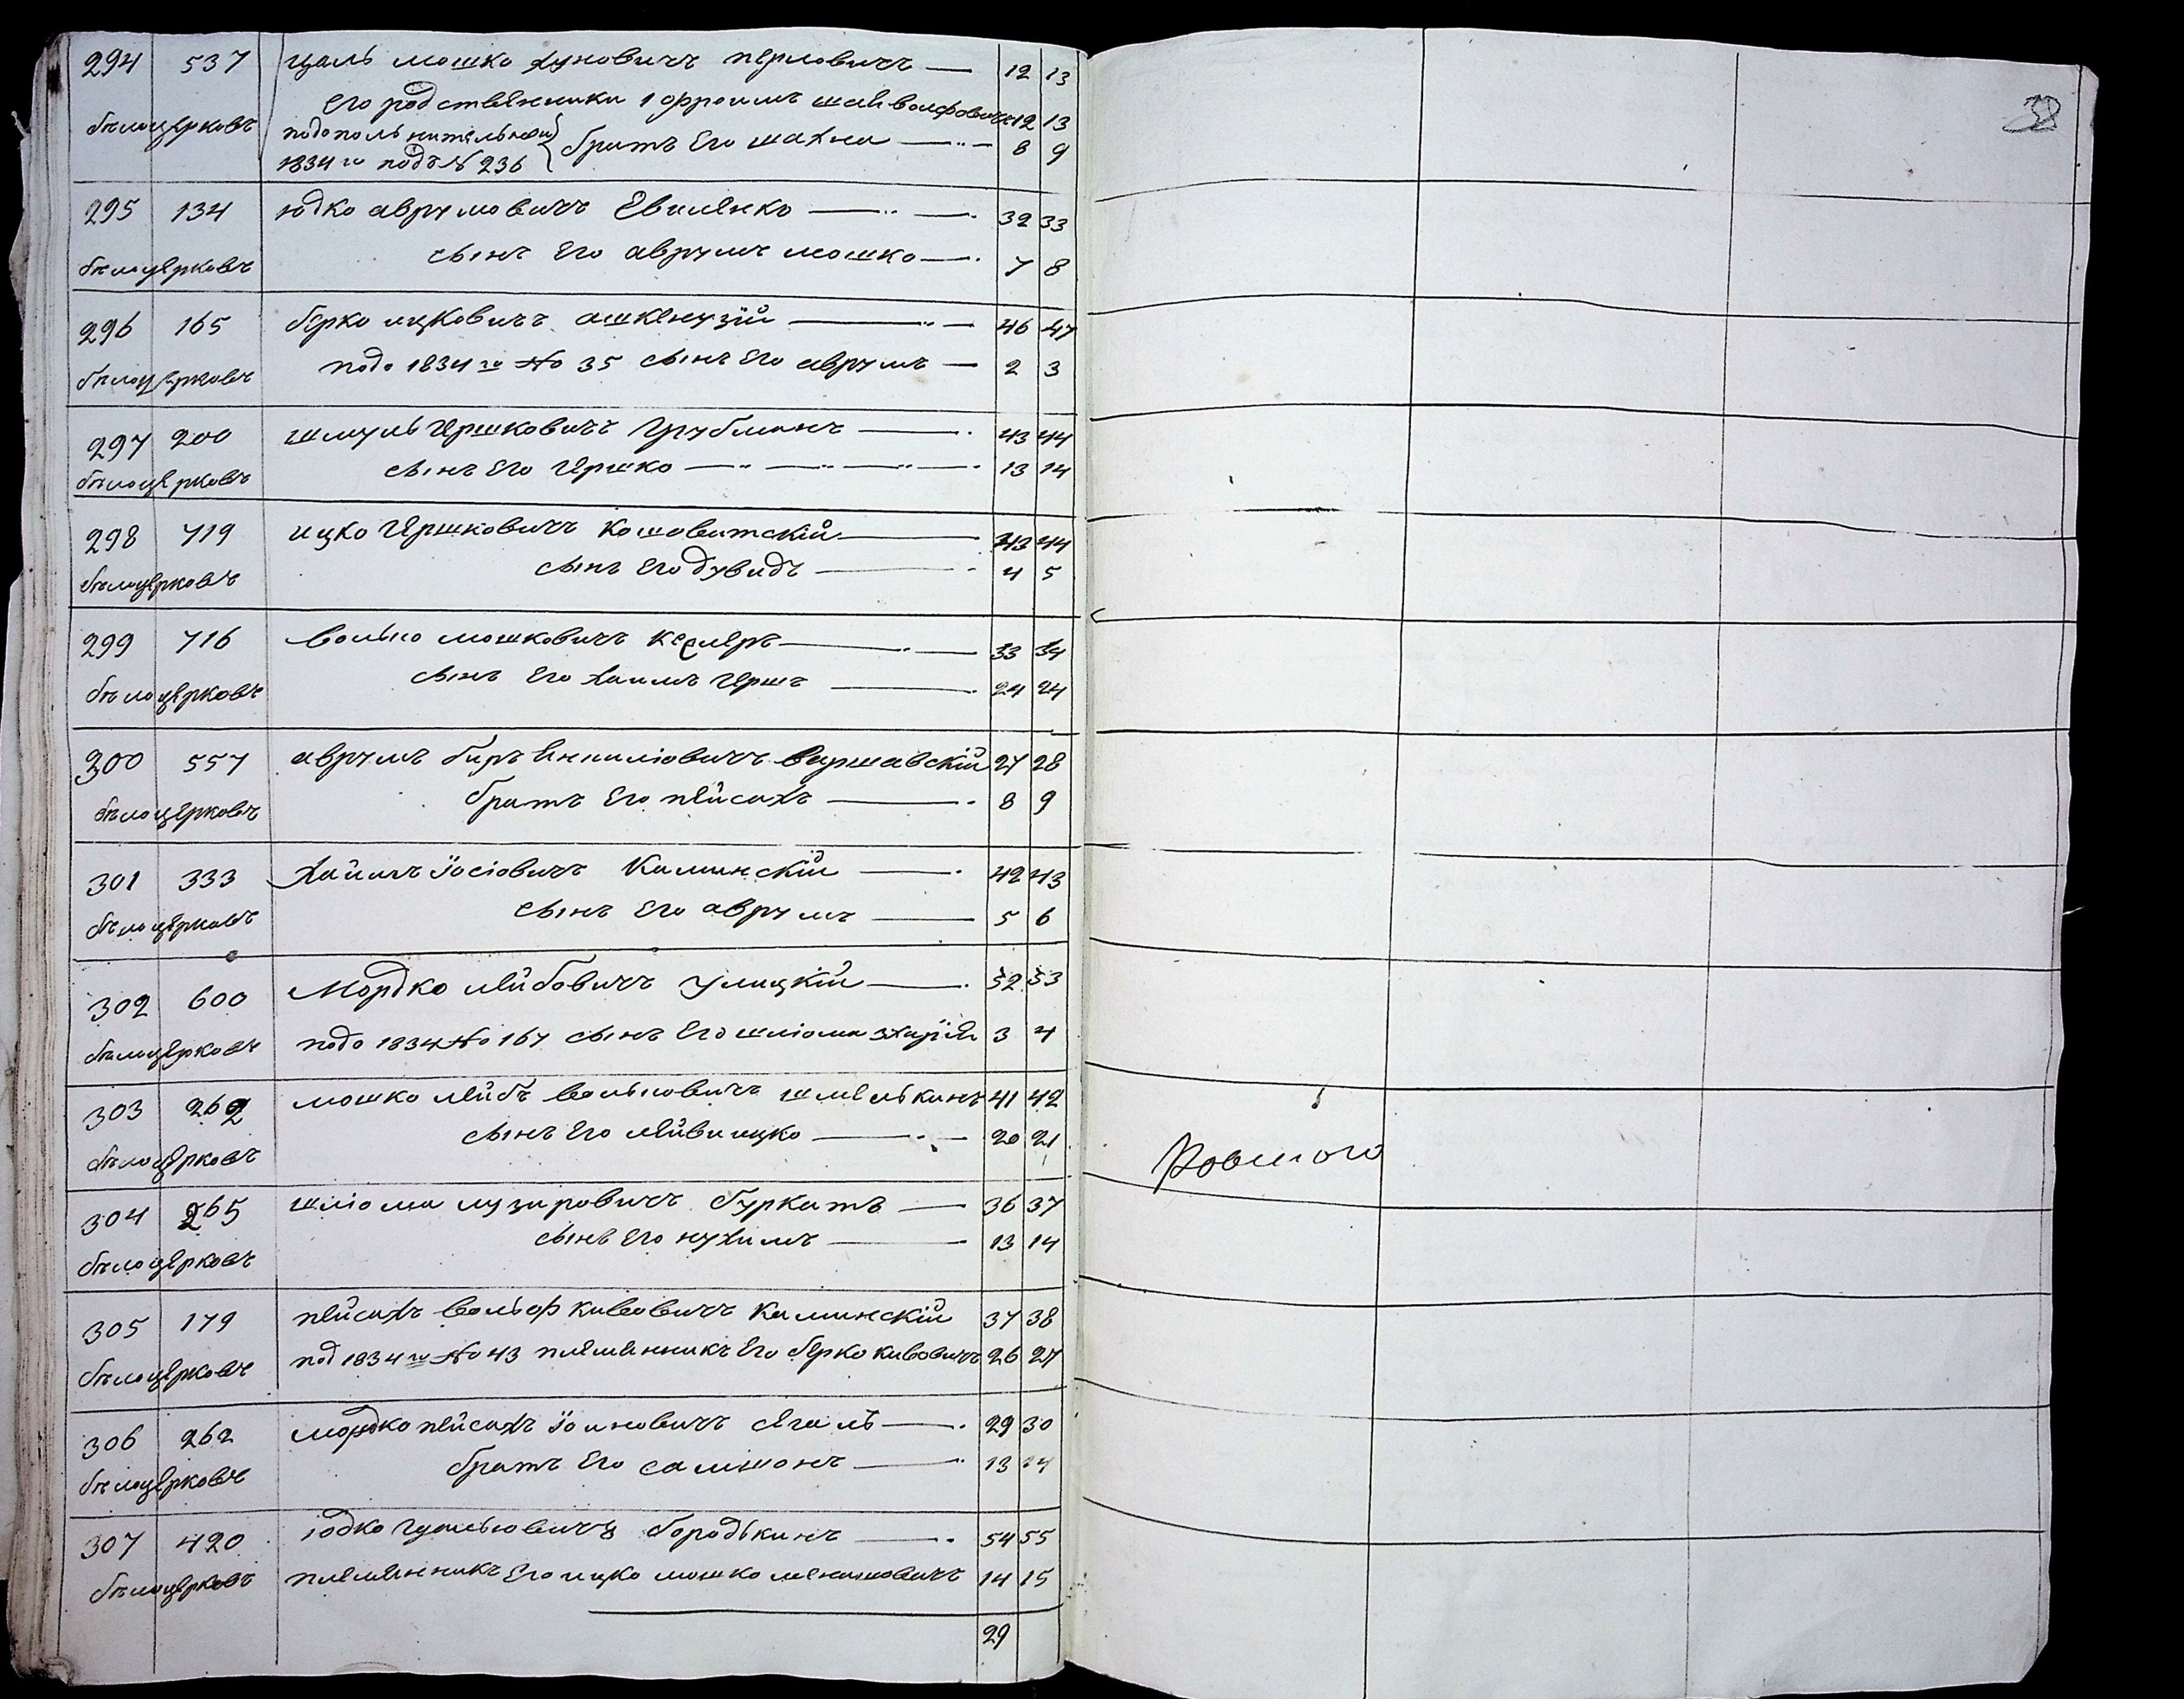 294 537 цаль мошко Хуновичъ перловичъ — 12 13
его родственники 1 ефроимъ шая волфовичъ 12 13
бѣлоцерковъ подополнительной 1834 го подъ N 236 } братъ его шахна — 8 9
295 134 юдко аврумовичъ Евиленко — 32 33
бѣлоцерковъ сынъ его аврумъ мошко — 7 8
296 165 берко ицковичъ ашкенузій — 46 47
бѣлоцерковъ подо 1834 го No 35 сынъ его аврумъ — 2 3
297 200 шмуль гершковичъ Грубманъ — 43 44
бѣлоцерковъ сынъ его гершко — 13 14
298 719 ицко гершковичъ Кошоватскій — 43 44
бѣлоцерковъ сынъ его дувидъ — 4 5
299 716 волько мошковичъ — 33 34
бѣлоцерковъ сынъ его хаимъ гершъ — 24 24
300 557 аврумъ беръ варшавскій 27 28
бѣлоцерковъ братъ его пейсахъ — 8 9
301 333 Хаимъ іосіовичъ Каминскій — 42 43
бѣлоцерковъ сынъ его аврумъ — 5 6
302 600 Мордко лейбовичъ улицкій — 52 53
бѣлоцерковъ подо 1834 No 167 сынъ его шліома 3 4
303 262 мошко лейбъ вольковичъ шмелькинъ 41 42
бѣлоцерковъ сынъ его ицко — 20 21
304 265 шліома лузаровичъ буркатъ — 36 37
бѣлоцерковъ сынъ его нухимъ — 13 14
305 179 пейсахъ вольф кивовичъ Каминскій 37 38
бѣлоцерковъ под 1834 го No 43 племянникъ его берко кивовичъ 26 27
306 262 мордко пейсахъ сегаль — 29 30
бѣлоцерковъ братъ его самшонъ — 13 14
307 420 юдко бородькинъ — 54 55
бѣлоцерковъ племянникъ его ицко мошко менашовичъ 14 15
29